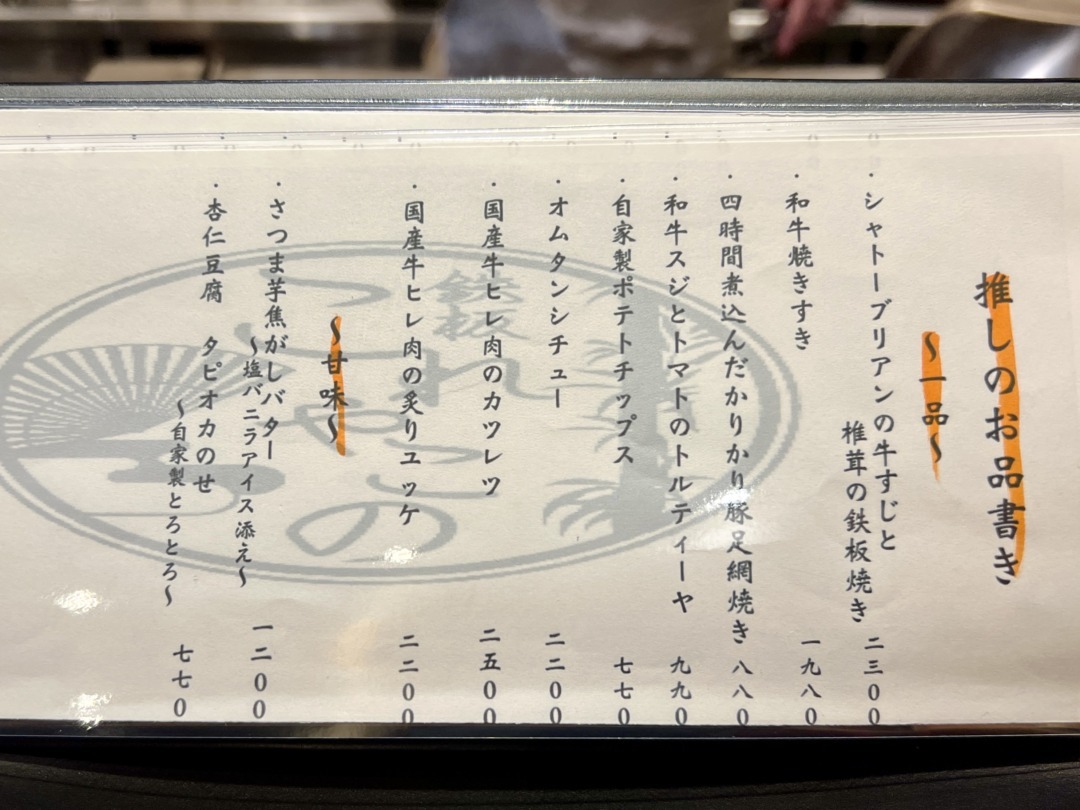 推しのお品書き
～一品～
・シャトーブリアンの牛すじと
椎茸の鉄板焼き 二三00
・和牛焼きすき 一九八0
・四時間煮込んだかりかり豚足網焼き 八八0
・和牛スジとトマトのトルティーヤ 九九0
・自家製ポテトチップス 七七0
・オムタンシチュー 二二00
・国産牛ヒレ肉のカツレツ 二五00
・国産牛ヒレ肉の炙りユッケ 二二00
～甘味～
・さつま芋焦がしバター
～塩バニラアイス添え～ 一二00
・杏仁豆腐 タピオカのせ
～自家製とろとろ～ 七七0
鉄板